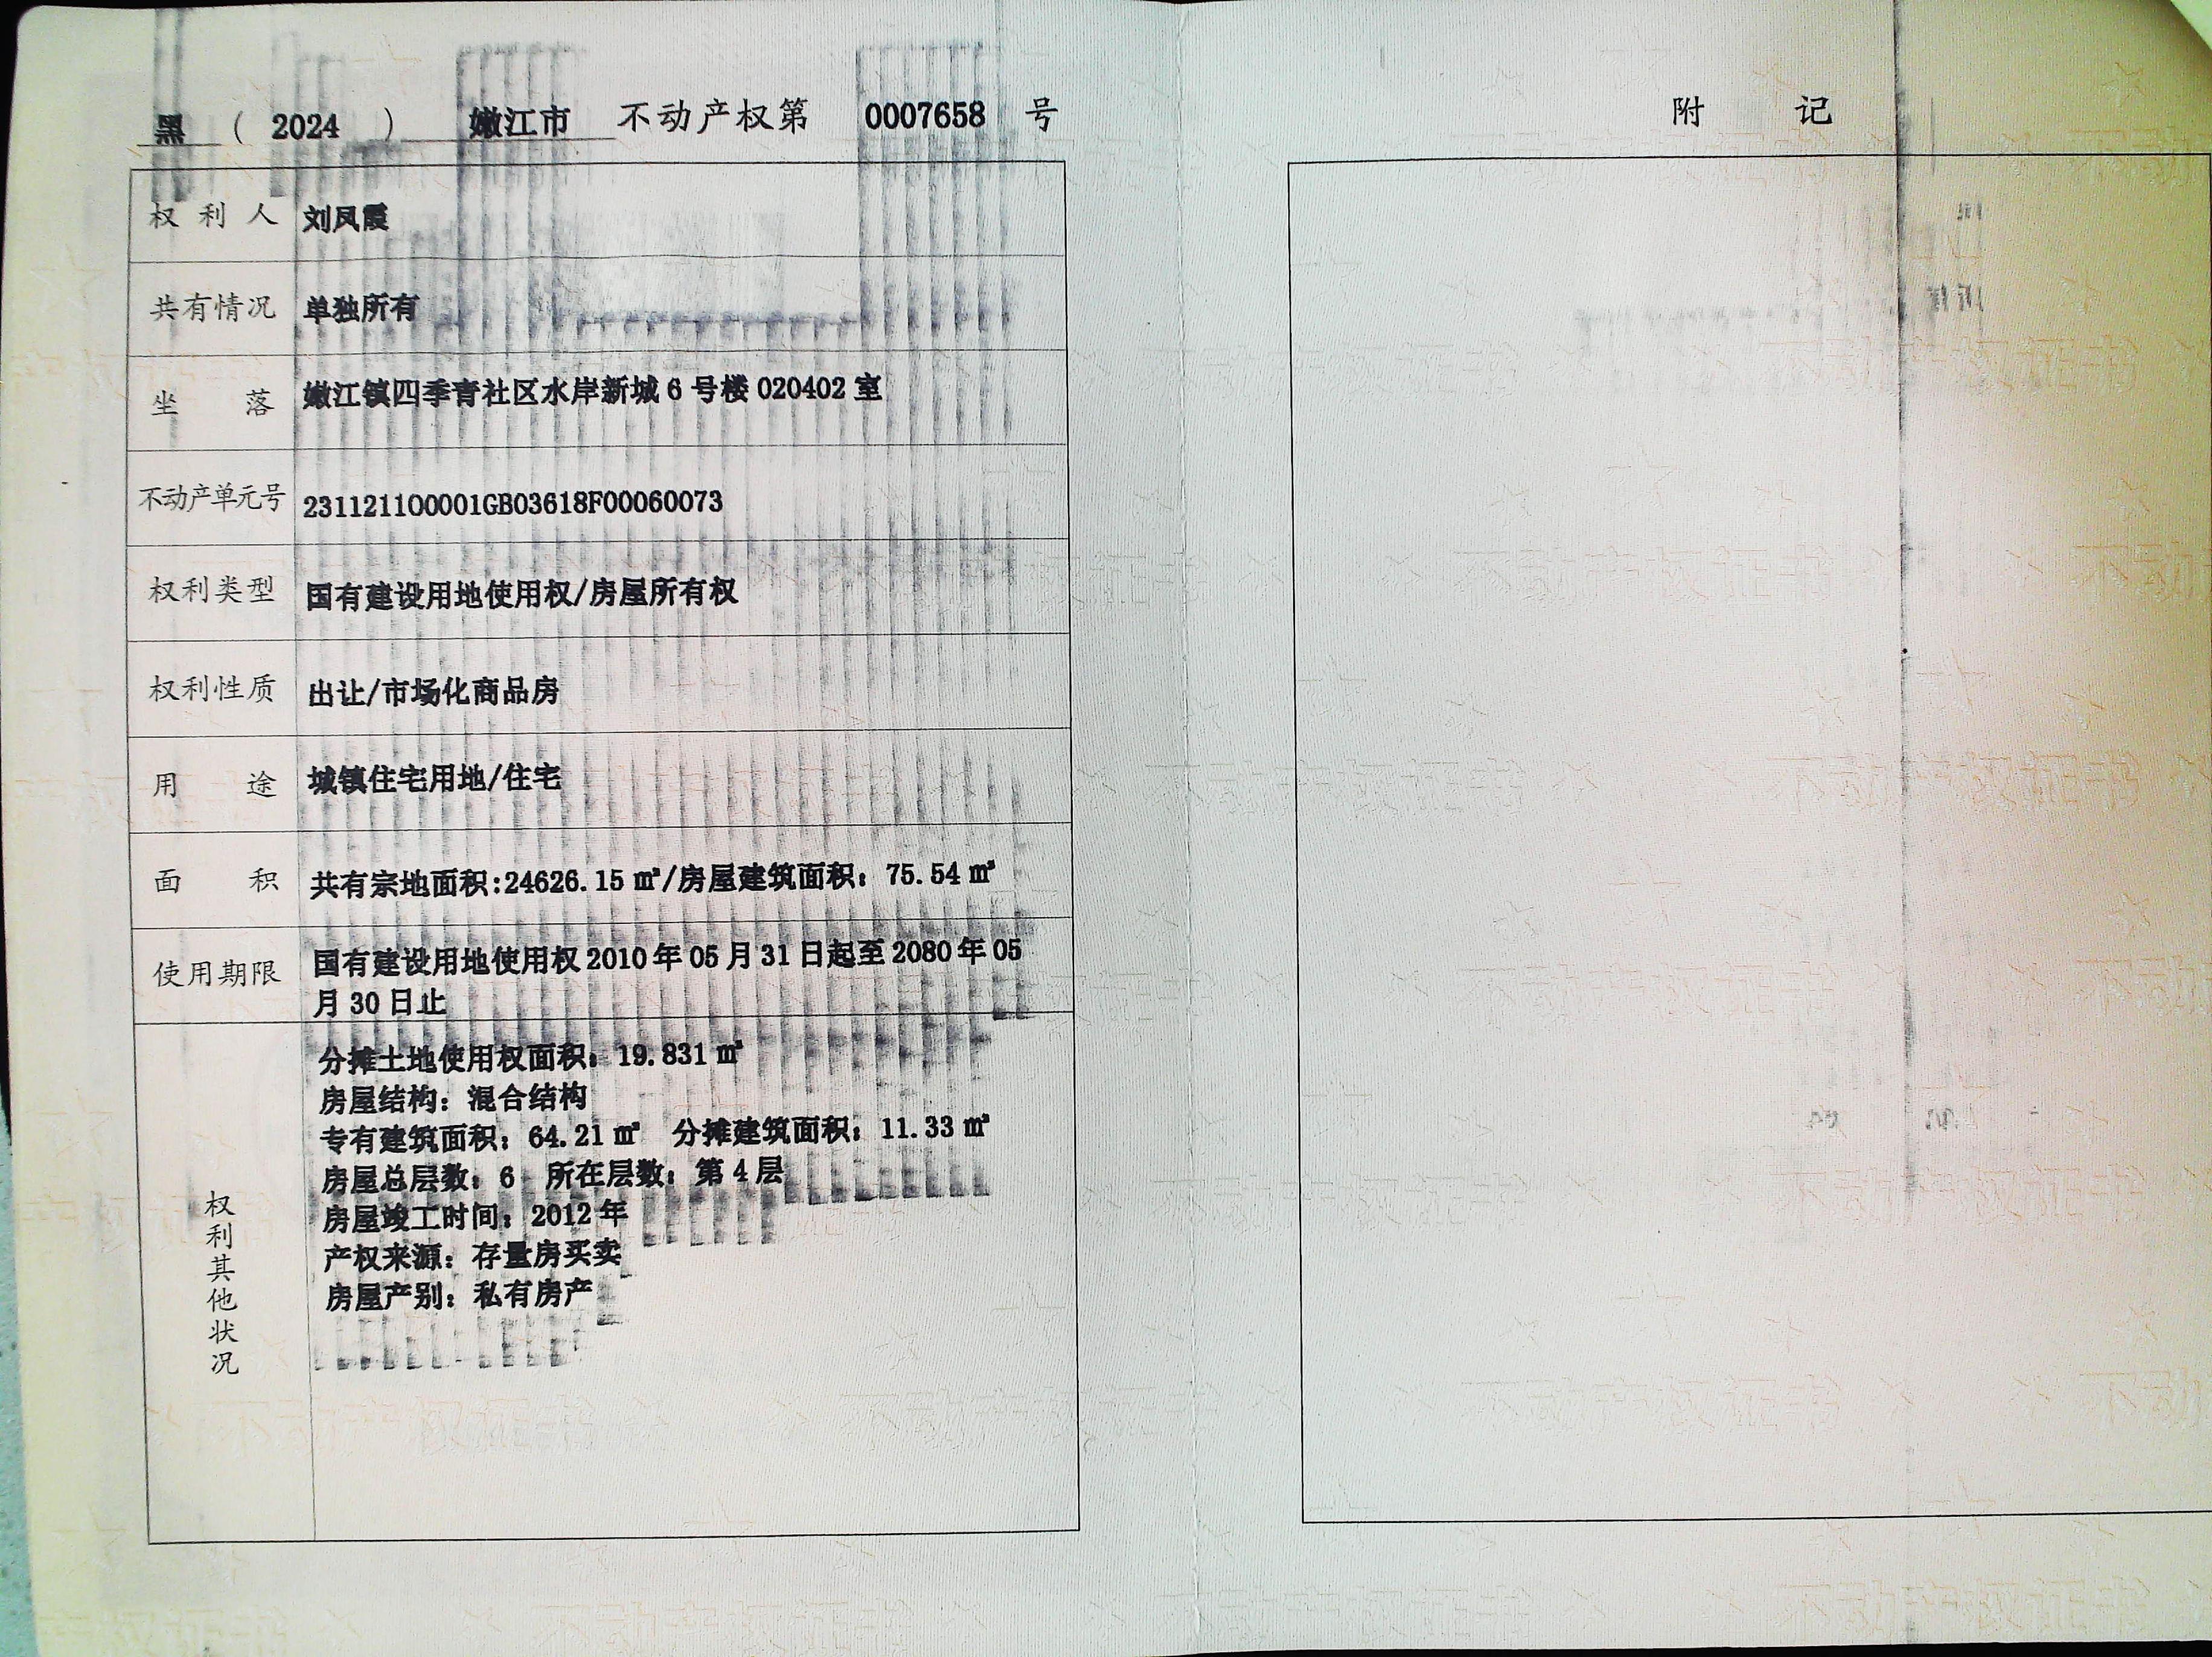 黑 ( 2024 ) 嫩江市 不动产权第 0007658 号
权利人 刘凤霞
共有情况 单独所有
坐落 嫩江镇四季青社区水岸新城 6 号楼 020402 室
不动产单元号 231121100001GB03618F00060073
权利类型 国有建设用地使用权/房屋所有权
权利性质 出让/市场化商品房
用途 城镇住宅用地/住宅
面积 共有宗地面积:24626.15 ㎡/房屋建筑面积：75.54 ㎡
使用期限 国有建设用地使用权 2010 年 05 月 31 日起至 2080 年 05
月 30 日止
权利其他状况
分摊土地使用权面积：19.831 ㎡
房屋结构：混合结构
专有建筑面积：64.21 ㎡ 分摊建筑面积：11.33 ㎡
房屋总层数：6 所在层数：第 4 层
房屋竣工时间：2012 年
产权来源：存量房买卖
房屋产别：私有房产
附记